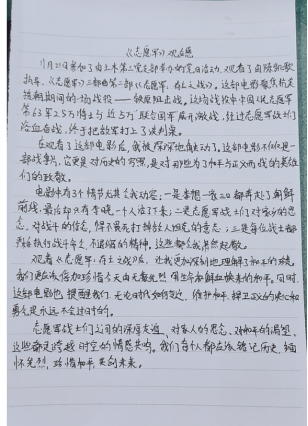 《志愿军》观后感
11月22日参加了由土木第三党支部举办的党日活动,观看了由陈凯歌
执导,《志愿军》三部曲第二部《志愿军:存亡之战》。这部电影聚焦抗美
援朝期间的一场战役——铁原阻击战。这场战役中中国人民志愿军
第63军2.5万将士与近5万"联合国军"展开激战,经过志愿军战士们
浴血奋战,终于把敌军打上了谈判桌。
在观看了这部电影后,我被深深地触动了。这部电影不仅仅是一
部战争片,它更是对历史的写照,是对那些为了和平与正义而战的英雄
们的致敬。
电影中有3个情节尤其令我动容:一是李想一家三口都奔赴了朝鲜
前线,最后却只有李晓一个人活了下来;二是志愿军战士们对家乡的思
念,对战千的信念,
开始执行战斗命令,不退缩的精神,这些都令我肃然起敬。
观看《志愿军:存亡之战》后,让我更加深刻地理解了和平的珍贵。
我们更应该倍加珍惜今天由无数先烈用生命和鲜血换来的和平。同时,
这部电影也提醒我们,无论时代如何变迁,维护和平、捍卫正义的决心和
勇气是永远不会过时的。
志愿军战士们之间的深厚友谊、对家人的思念、对和平的渴望,
这些都是跨越时空的情感共鸣。我们每个人都应该铭记历史,缅
怀先烈,珍惜和平,共创未来。